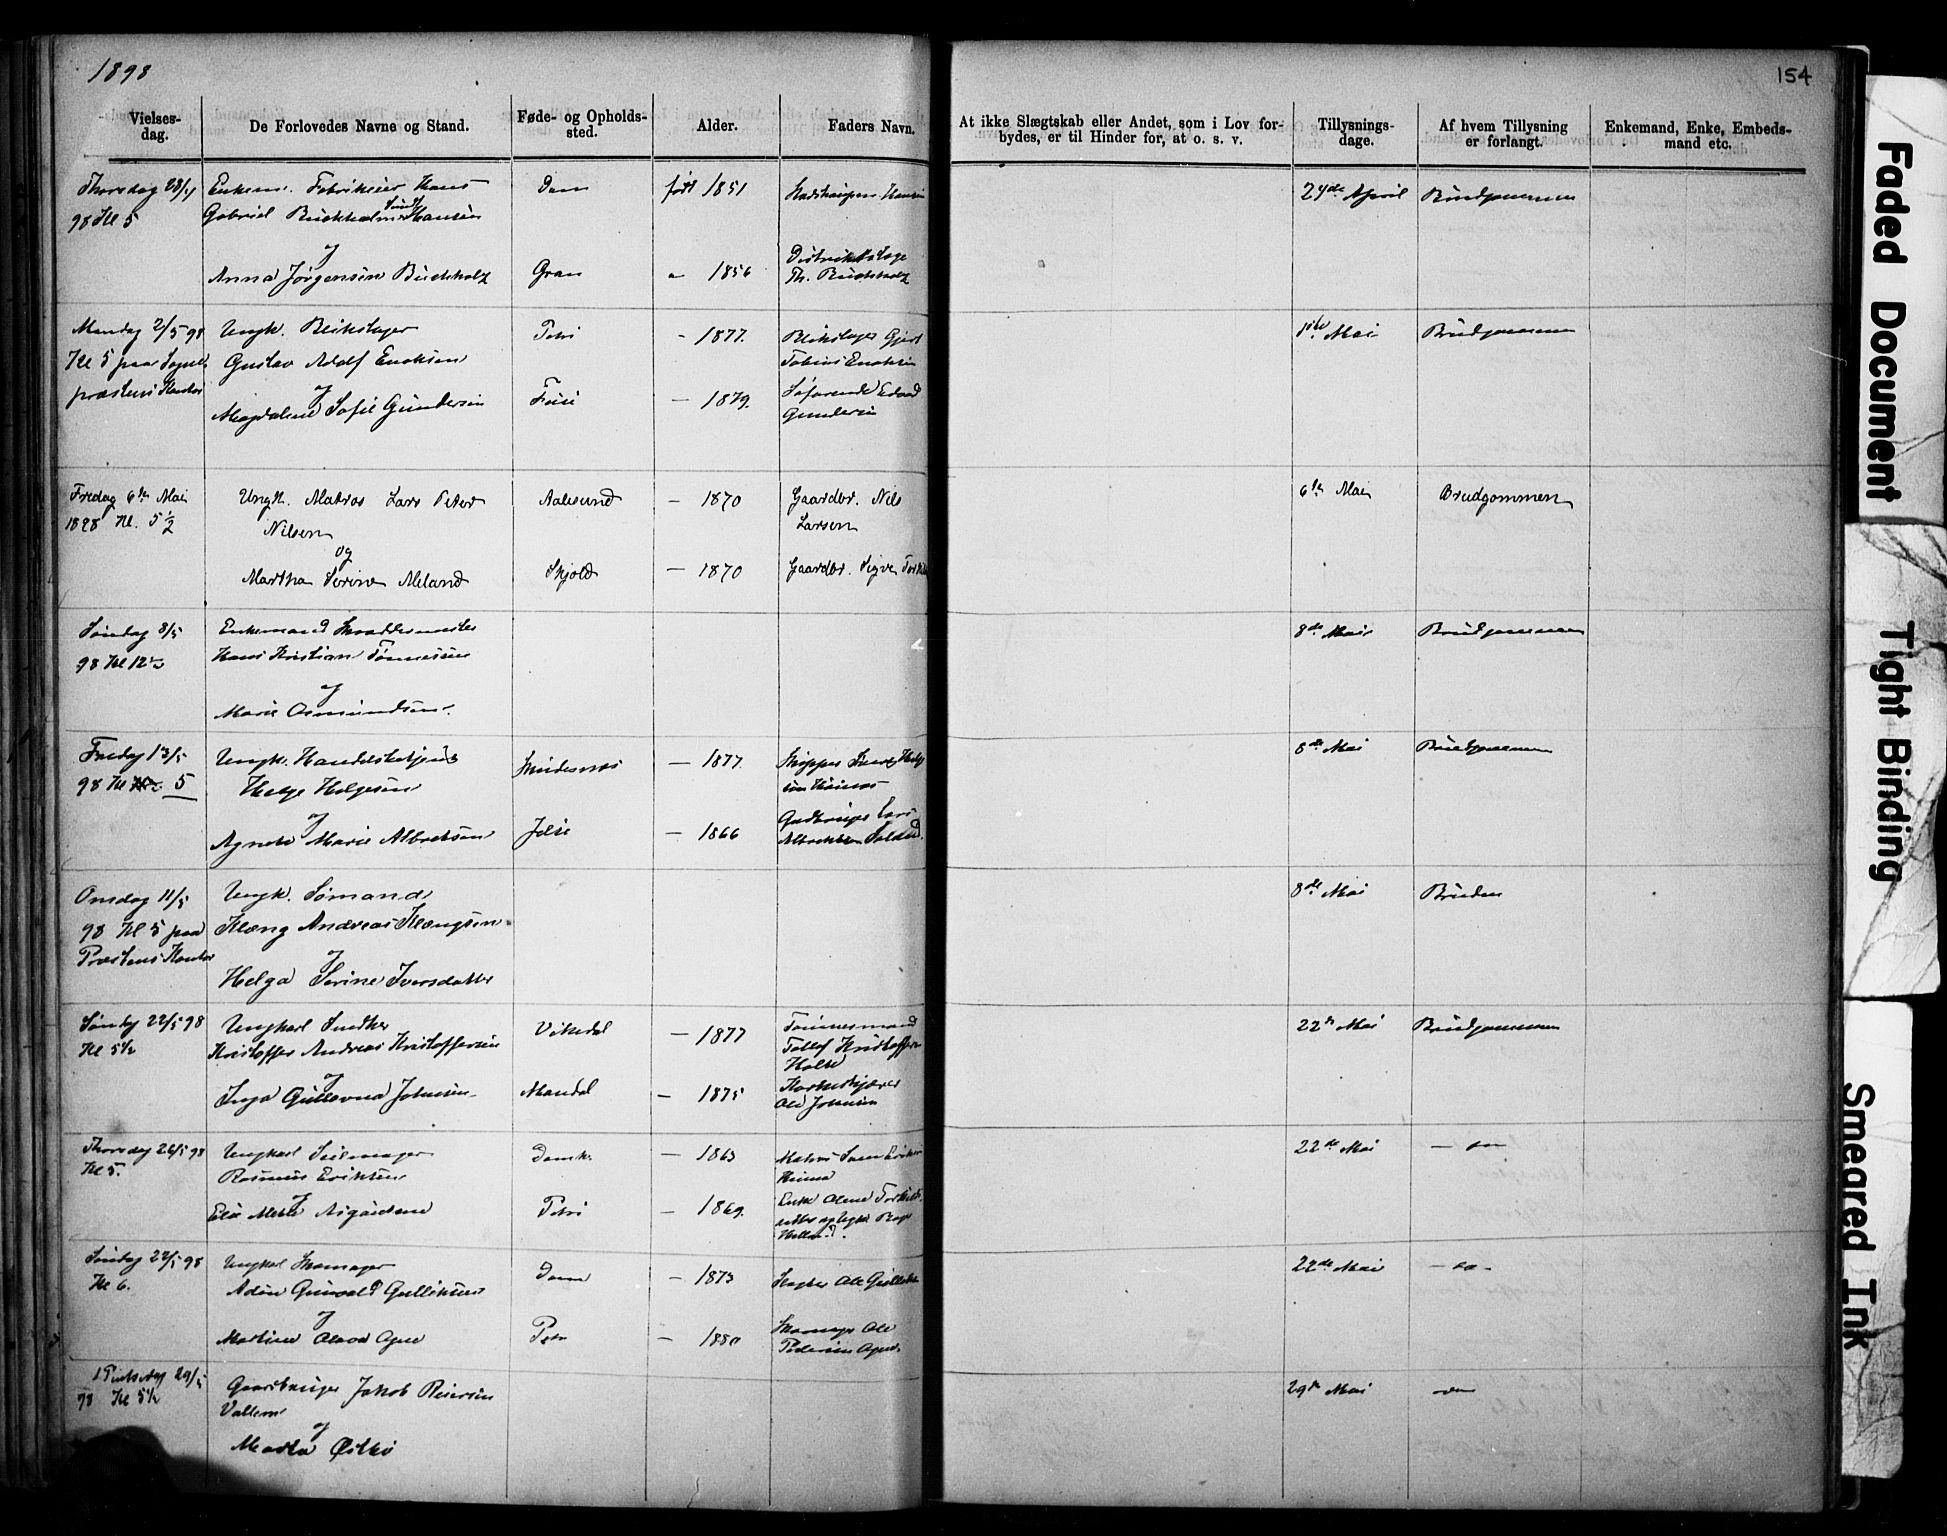 1898
154
Vielses-
dag.
De Forlovedes Navne og Stand.
Føde- og Opholds-
sted.
Alder.
Faders Navn.
At ikke Slægtskab eller Andet, som i Lov for-
bydes, er til Hinder for, at o. s. v.
Tillysnings-
dage.
Af hvem Tillysning
er forlangt.
Enkemand, Enke, Embeds-
mand etc.
Thorsdag 28/4
98 Kl 5
Enkem. Hans
Gabriel Hansen
og
Anna Jørgensen Buchholz
Dom
Gran
født 1851
1856
Hansen
Distriktslæge
Th. Buchholz
24de April
Brudgommen
Mandag 2/5 98
Kl 5 paa Sogne
præstens Kontor
Ungk. Blikslager
Gustav Adolf Enoksen
og
Magdalene Sofie Gundersen
Petri
- 1877.
— 1879.
Blikslager
Tobias Enoksen
Søfarende
Gundersen
1ste Mai
Brudgommen
Fredag 6te Mai
1898 Kl. 5½
Ungk. Matros Lars Peter
Nilsen
og
Martha Serine Meland
Aalesund
Skjold
— 1870
— 1870
Gaardbr. Nils
Larsen
Gaardbr. Sigve
6te Mai
Brudgommen
Søndag 8/5
98 Kl 12½
Enkemand Skræddermester
Hans Kristian Tønnesen
og
Marie Osmundsen.
8de Mai
Brudgommen
Fredag 13/5
98 Kl 5
Ungk. Handelsbetjent
Helge Helgesen
og
Agnete Marie Albretsen
Skudesnæs
Jelse
— 1877.
— 1866
Skipper
Gaardbruger Lars
Albretsen
8de Mai
Brudgommen
Onsdag 11/5
98 Kl 5 paa
Præstens Kontor
Ungk. Sømand
Klæng Andreas Klængsen
og
Helga Serine Iversdatter
8de Mai
Bruden
Søndag 22/5 98
Kl 5½
Ungkarl Snedker
Kristoffer Andreas Kristoffersen
og
Inga Gustava Johnsen
Vikedal
Mandal
— 1877
— 1875
Tømmermand
Tollef Kristoffersen
Ole Johnsen
22de Mai
Brudgommen
Thorsdag 26/5 98
Kl 5.
Ungkarl Seilmager
Rasmus Eriksen
og
Domk.
Petri
— 1863
— 1869.
Matros
22de Mai
Søndag 22/5 98
Kl 6.
Ungkarl Skomager
Gulliksen
og
Dom
Petri
— 1873
— 1880
Ole
Skomager Ole
Pedersen
22de Mai
1 Pintsedag 29/5
98 Kl 5½
Gaardbruger Jakob Reiersen
og
Marta
29de Mai
Faded Document
Tight Binding
Smeared Ink